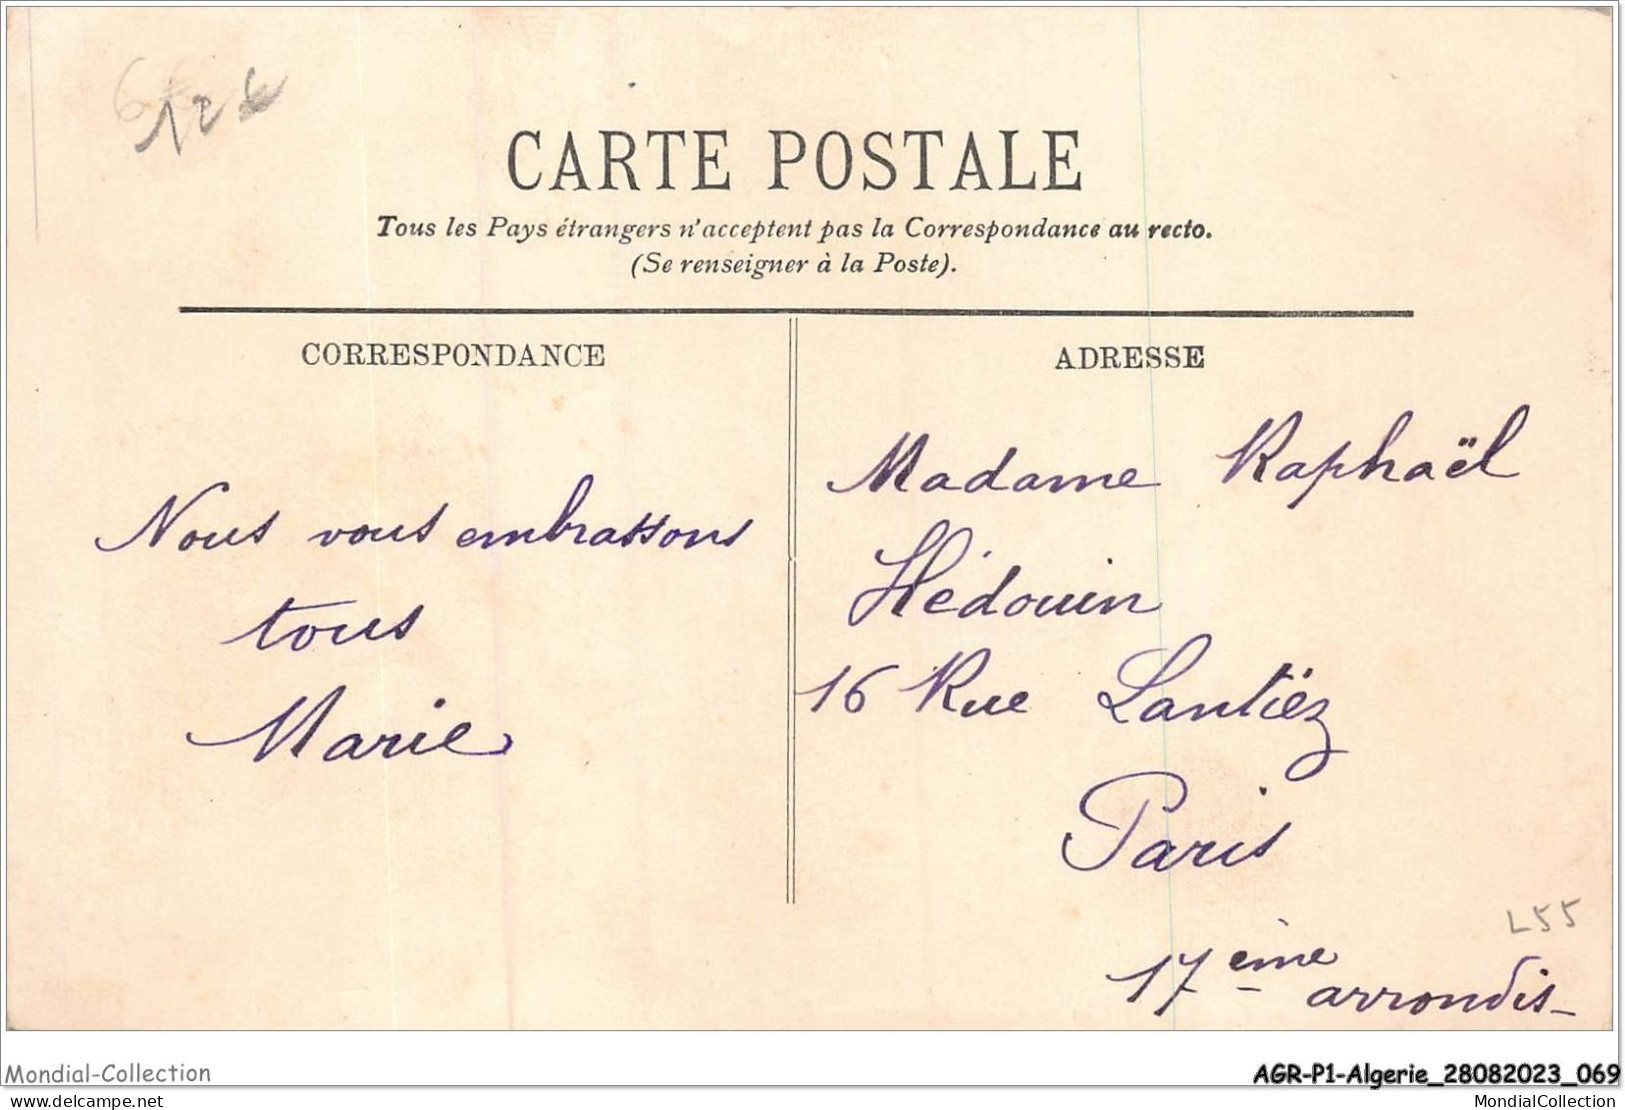 CARTE POSTALE
Tous les Pays étrangers n'acceptent pas la Correspondance au recto.
(Se renseigner à la Poste).
CORRESPONDANCE
Nous vous embrassons
tous
Marie
ADRESSE
Madame Raphaël
Hédouin
16 Rue Lantiëz
Paris
17 ème
arrondis-
L55
Mondial-Collection
AGR-P1-Algerie_28082023_069
delcampe.net
MondialCollection